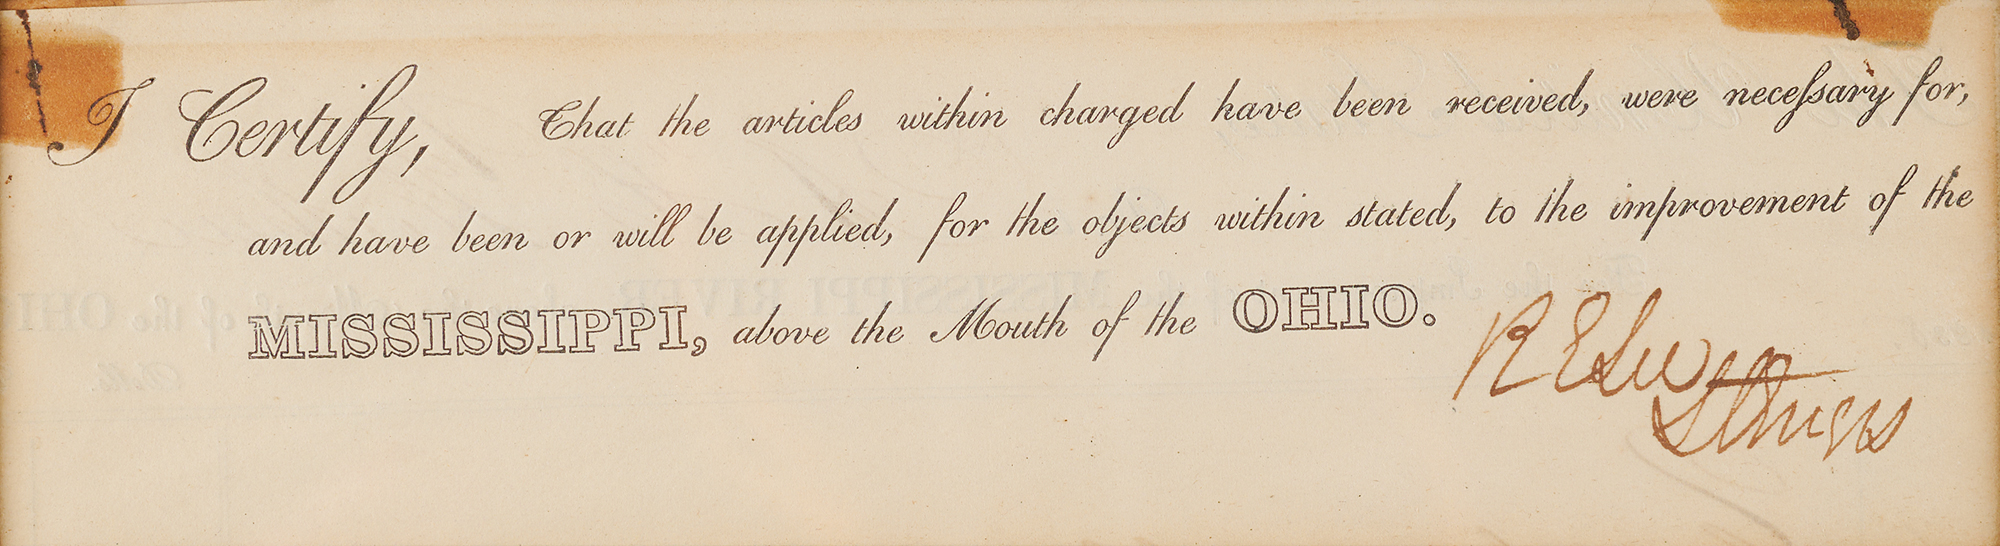 I Certify, That the articles within charged have been received, were neceſsary for,
and have been or will be applied, for the objects within stated, to the improvement of the
MISSISSIPPI, above the Mouth of the OHIO.
R E Lee